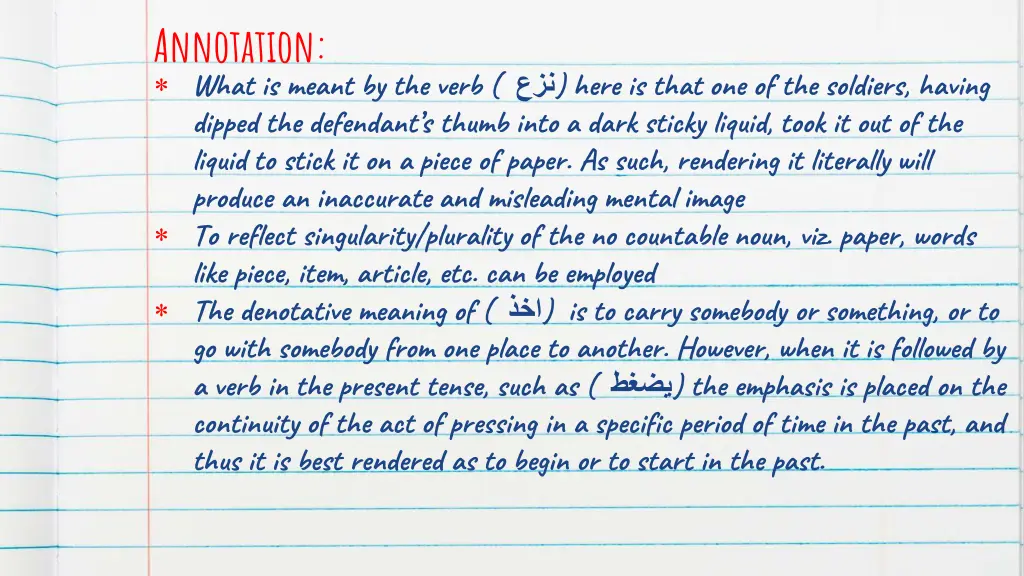 Annotation:
* What is meant by the verb ( نزع) here is that one of the soldiers, having
dipped the defendant's thumb into a dark sticky liquid, took it out of the
liquid to stick it on a piece of paper. As such, rendering it literally will
produce an inaccurate and misleading mental image
* To reflect singularity/plurality of the no countable noun, viz. paper, words
like piece, item, article, etc. can be employed
* The denotative meaning of ( اخذ) is to carry somebody or something, or to
go with somebody from one place to another. However, when it is followed by
a verb in the present tense, such as ( يضغط) the emphasis is placed on the
continuity of the act of pressing in a specific period of time in the past, and
thus it is best rendered as to begin or to start in the past.